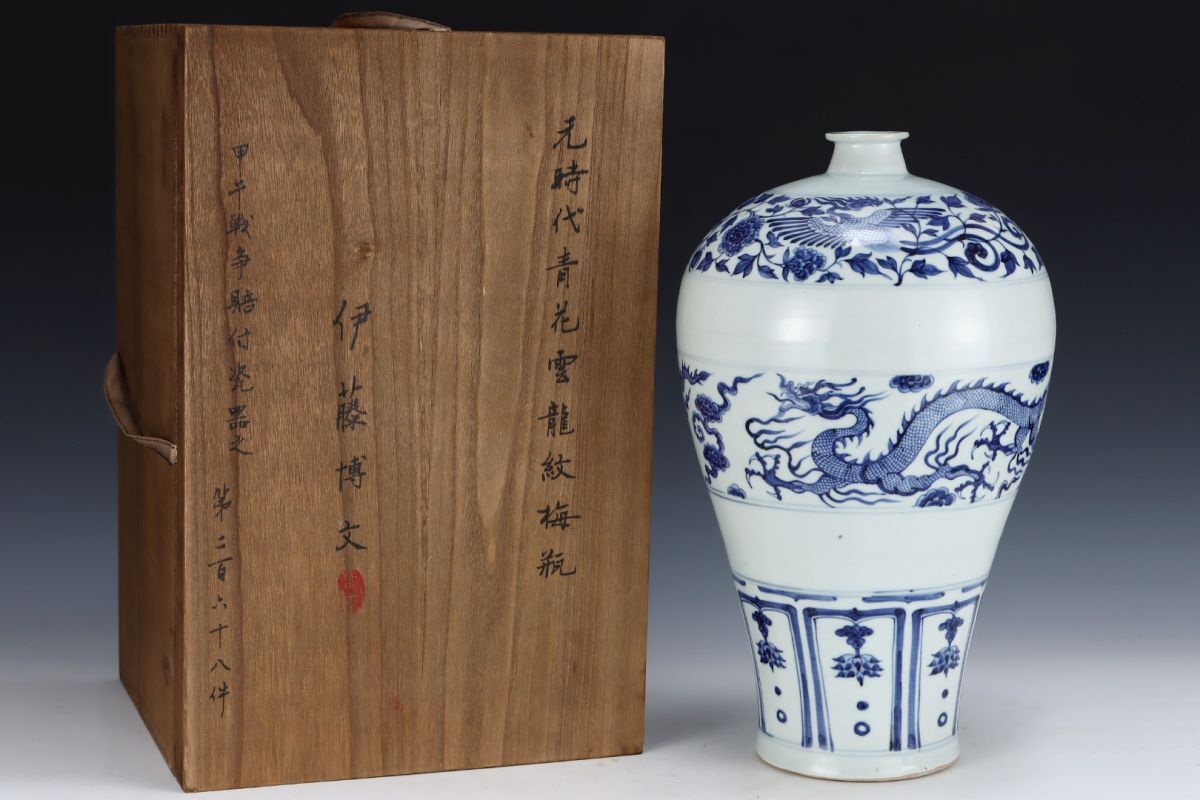 元時代青花雲龍紋梅瓶
伊藤博文
甲午戰争賠付瓷器之
第二百六十八件